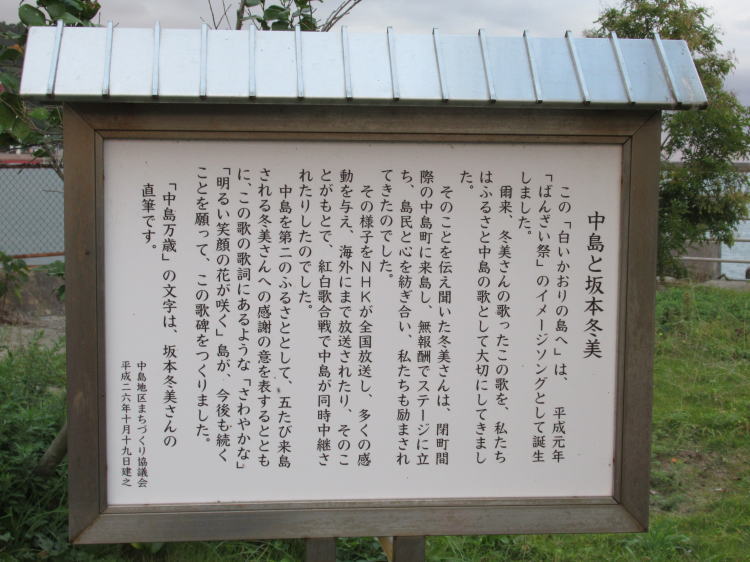 中島と坂本冬美
この「白いかおりの島へ」は、　平成元年
「ばんざい祭」のイメージソングとして誕生
しました。
爾来、冬美さんの歌ったこの歌を、私たち
はふるさと中島の歌として大切にしてきまし
た。
そのことを伝え聞いた冬美さんは、閉町間
際の中島町に来島し、無報酬でステージに立
ち、島民と心を紡ぎ合い、私たちも励まされ
てきたのでした。
その様子をNHKが全国放送し、多くの感
動を与え、海外にまで放送されたり、そのこ
とがもとで、紅白歌合戦で中島が同時中継さ
れたりしたのでした。
中島を第二のふるさととして、五たび来島
される冬美さんへの感謝の意を表するととも
に、この歌の歌詞にあるような「さわやかな」
「明るい笑顔の花が咲く」島が、今後も続く
ことを願って、この歌碑をつくりました。
「中島万歳」の文字は、坂本冬美さんの
直筆です。
中島地区まちづくり協議会
平成二六年十月十九日建之